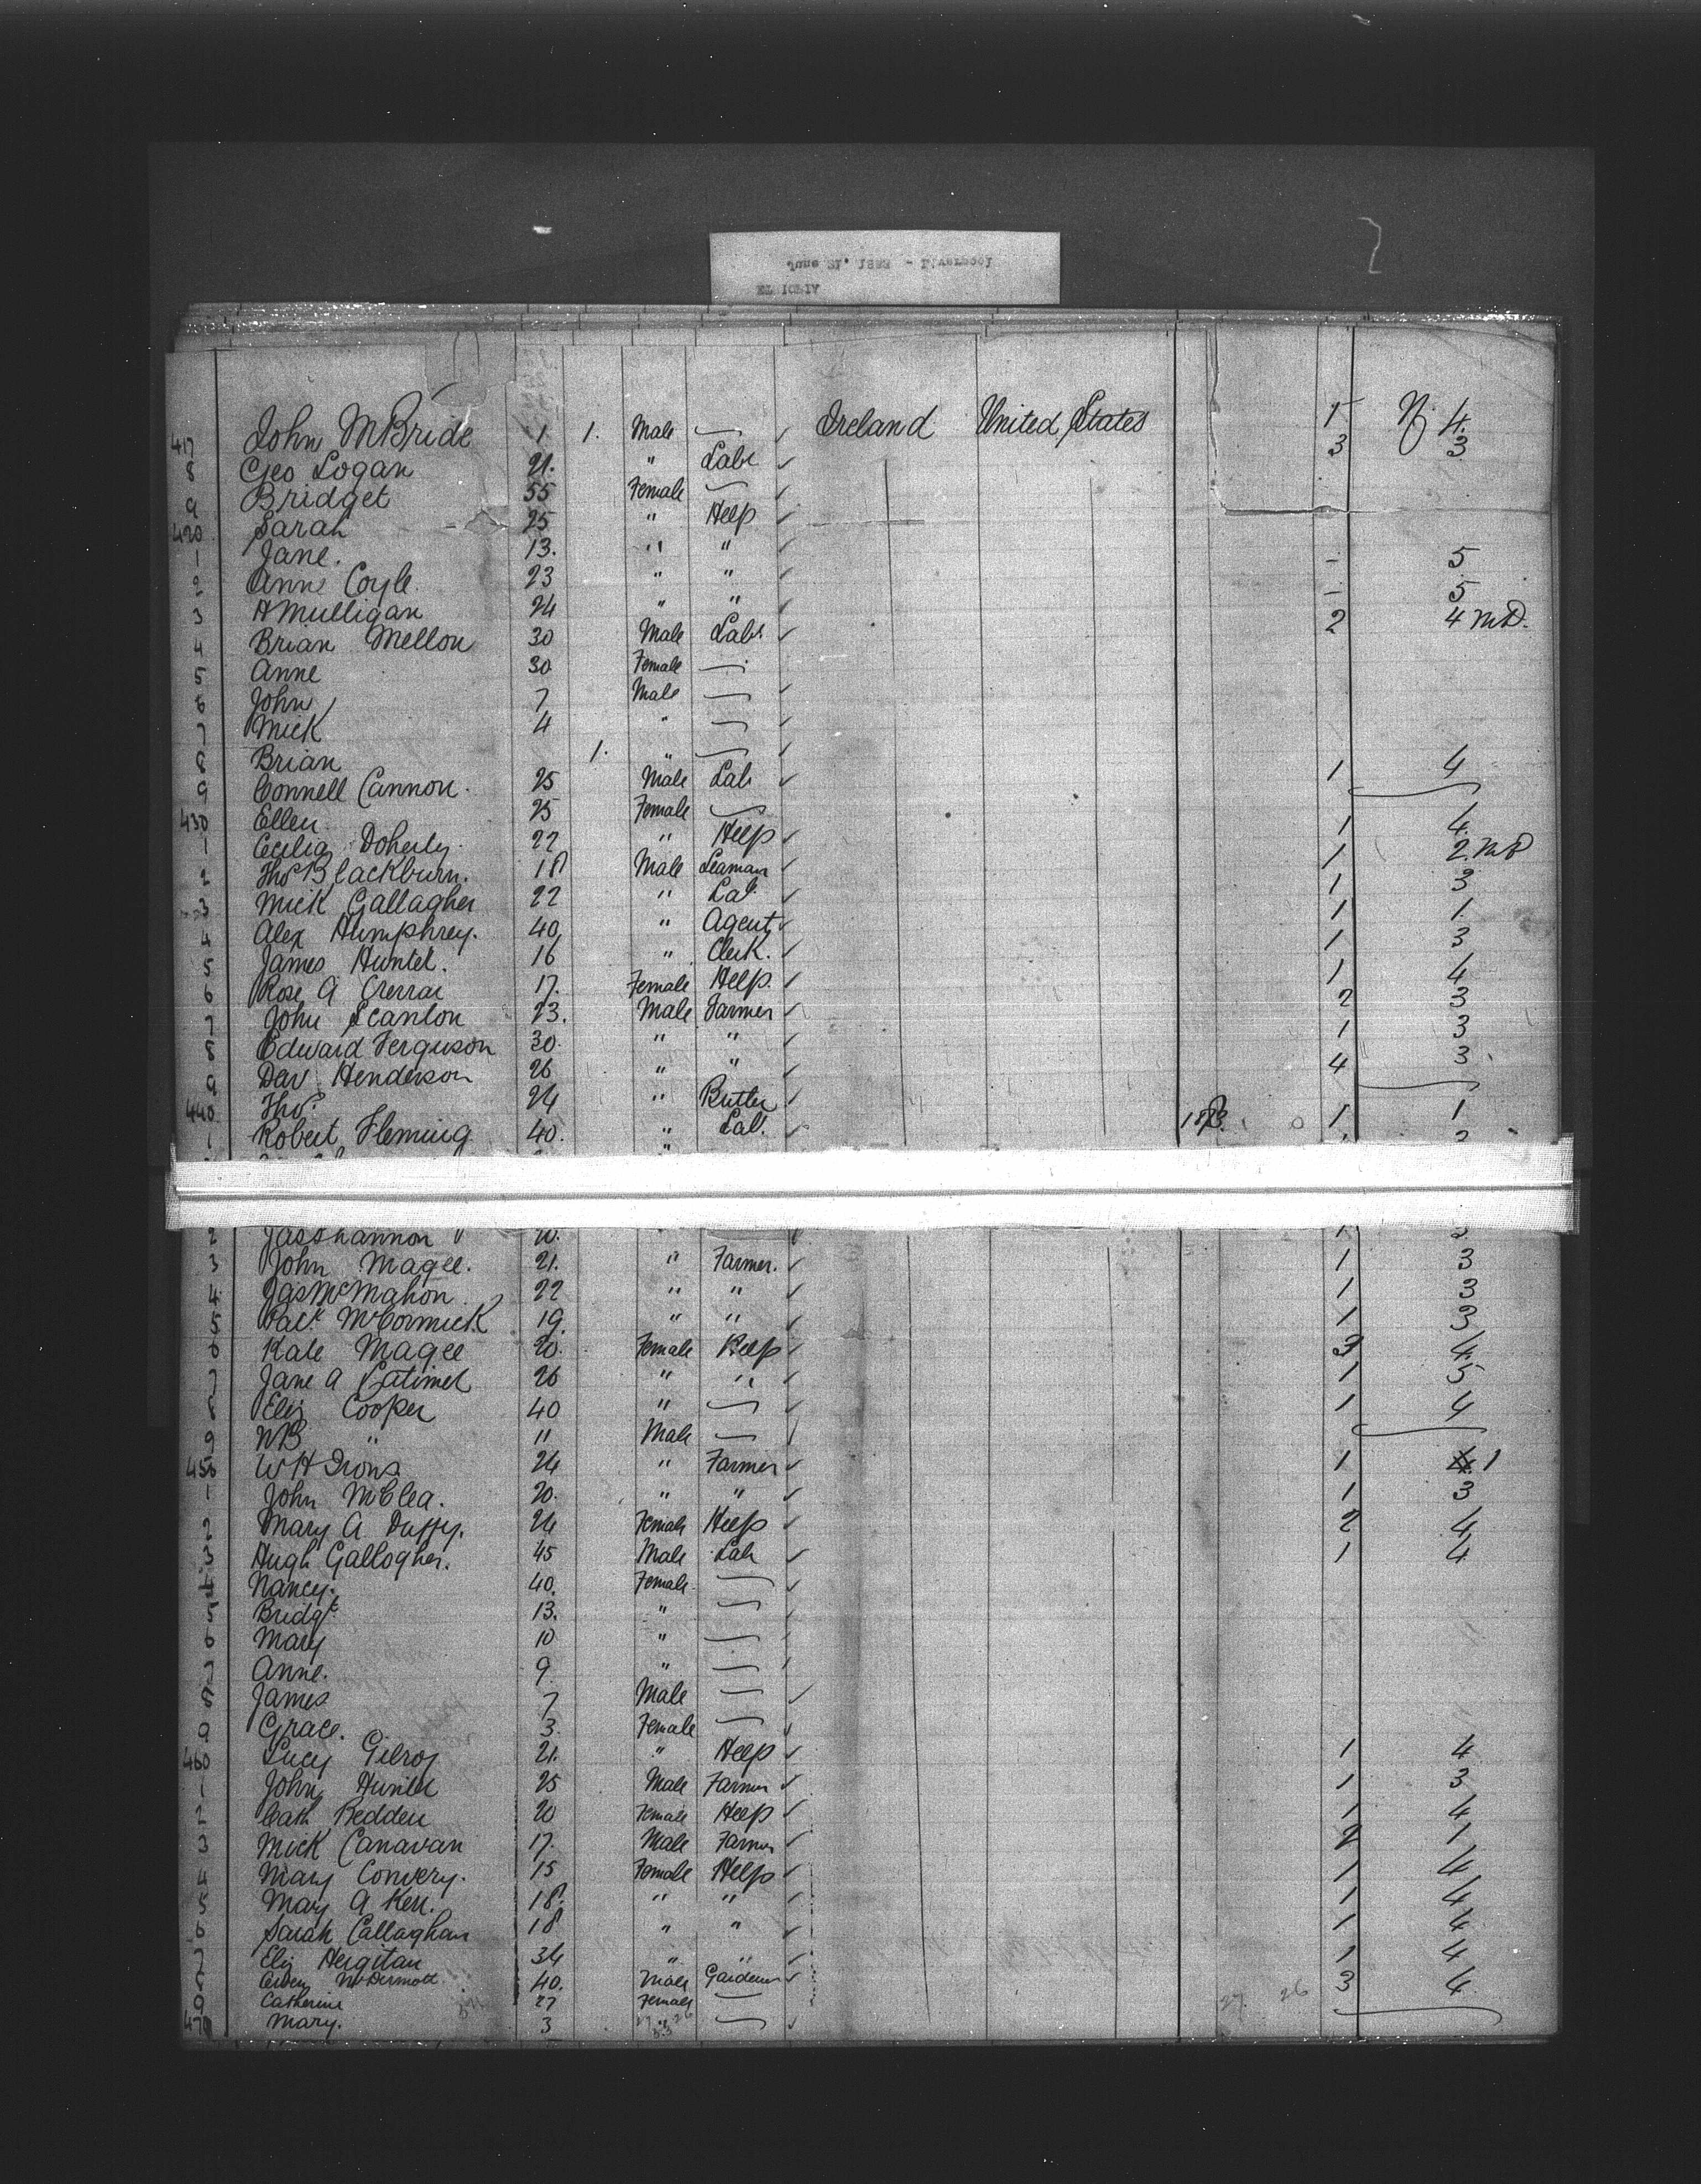 417 John McBride 1 1. Male — ✓ Ireland United States 1 N.Y. 4.
8 Geo Logan 21. " Labr ✓ 3 3
9 Bridget 55 Female — ✓
420 Sarah 25 " Help ✓
1 Jane. 13. " " ✓ - 5
2 Anne Coyle. 23 " " ✓ - 5
3 A Mulligan 24 " " ✓ 2 4 MD.
4 Brian Mellon 30 Male Labr ✓
5 Anne 30 Female —
6 John 7 Male — ✓
7 Mick 4 " — ✓
8 Brian 1. " — ✓ 1 4
9 Connell Cannon. 25 Male Lab ✓
430 Ellen 25 Female — 1 4.
1 Cecilia Doherty. 22 " Help ✓ 1 2.
2 Thos Blackburn. 18 Male Seaman ✓ 1 3
3 Mick Gallagher 22 " Lab ✓ 1 1.
4 Alex Humphrey. 40 " Agent ✓ 1 3
5 James Hunter. 16 " Clerk. ✓ 1 4
6 Rose A 17. Female Help. ✓ 2 3
7 John Scanlon 23. Male Farmer ✓ 1 3
8 Edward Ferguson 30. " " ✓ 4 3
9 Dav. Henderson 26 " " ✓
440 Thos. 24 " Butler ✓ 1 1
1 Robert Fleming 40. " Lab. ✓
2 Jas Shannon 20.
3 John Magee. 21. " Farmer. ✓ 1 3
4 Jas McMahon 22 " " ✓ 1 3
5 Patk McCormick 19. " " ✓ 1 3
6 Kate Magee 20. Female Help ✓ 3 4.
7 Jane A Latimer 26 " " ✓ 1 5
8 Eliz Cooper 40 " — ✓ 1 4
9 WB " 11 Male —
450 W H Irons 24 " Farmer ✓ 1 1
1 John McClea. 20. " " ✓ 1 3
2 Mary A. Duffy. 24 Female Help ✓ 2 4
3 Hugh Gallogher. 45 Male Lab ✓ 1 4
4 Nancy. 40. Female — ✓
5 Bridgt 13. " —
6 Mary 10 " —
7 Anne. 9. " —
8 James 7 Male — ✓
9 Grace. 3. Female — ✓
460 Lucy Gilroy 21. " Help ✓ 1 4
1 John Hunter 25 Male Farmer ✓ 1 3
2 Cath Bedden 20 Female Help ✓ 1 4
3 Mick Canavan 17. Male Farmer ✓ 2 1
4 Mary Convery. 15 Female Help ✓ 1 4
5 Mary A Kerr. 18. " " ✓ 1 4
6 Sarah Callaghan 18 " " ✓ 1 4
7 Eliz Hergitan 34 " " ✓ 1 4
8 McDermott 40. Male Gardener ✓ 3 4.
9 Catherine 27 Female — 27. 26
470 Mary. 3 " — ✓